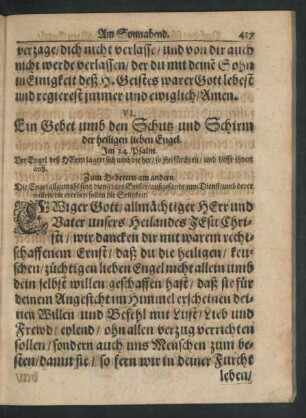 Am Sonnabend. 417
verzage/dich nicht verlasse/und von dir auch
nicht werde verlassen/der du mit deinē Sohn
in Einigkeit deß H. Geistes warer Gott lebest
und regierest jmmer und ewiglich/Amen.
VI.
Ein Gebet umb den Schutz und Schirm
der heiligen lieben Engel.
Im 34. Psalm.
Der Engel des HErrn lagert sich umb die her/so jhn fürchten/und hilfft jhnen
auß.
Zum Hebreern am andern.
Die Engel allzumahl sind dienstbare Geister/außgesandt zum Dienst/umb derer
willen/die ererben sollen die Seligkeit.
EWiger Gott/allmächtiger HErr und
Vater unsers Heilandes JEsu Chri-
sti/wir dancken dir mit warem recht-
schaffenem Ernst/daß du die heiligen/keu-
schen/züchtigen lieben Engel nicht allein umb
dein selbst willen geschaffen hast/daß sie für
deinem Angesicht im Himmel erscheinen/dei-
nen Willen und Befehl mit Lust/Lieb und
Frewd/eylend/ohn allen verzug verrichten
sollen/sondern auch uns Menschen zum be-
sten/damit sie/so fern wir in deiner Furcht
leben/